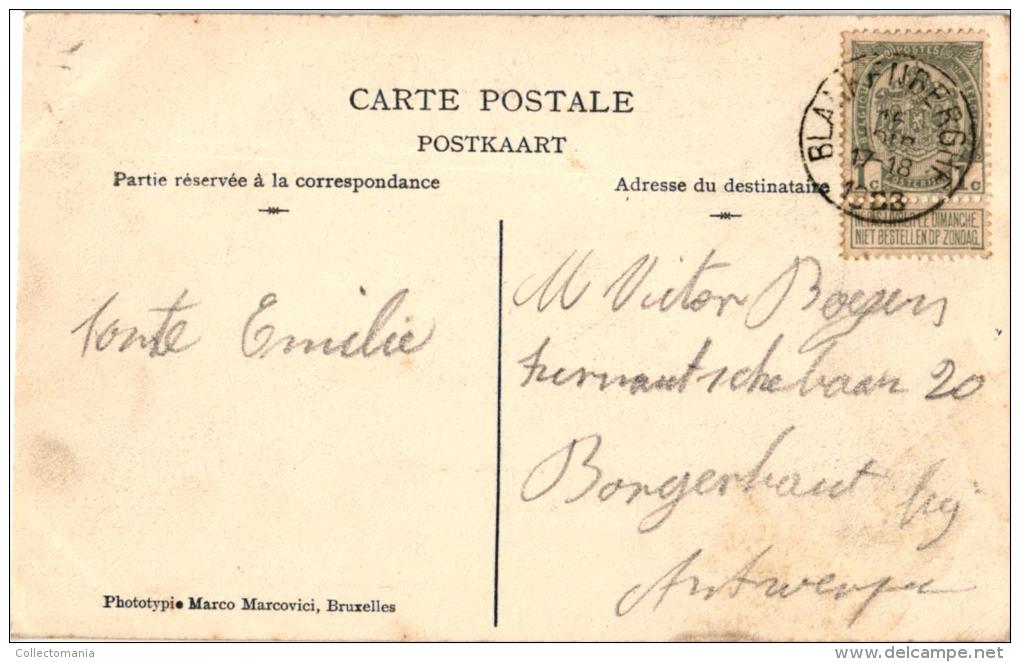 CARTE POSTALE
POSTKAART
Partie réservée à la correspondance
Adresse du destinataire
BLANKENBERGHE
17-18
POSTES
1c 1c
NE PAS LIVRER LE DIMANCHE
NIET BESTELLEN OP ZONDAG
tante Emilie
M Victor Boeyens
turnhoutschebaan 20
Borgerhout bij
Antwerpen
Phototypie Marco Marcovici, Bruxelles
Collectomania
delcampe.net